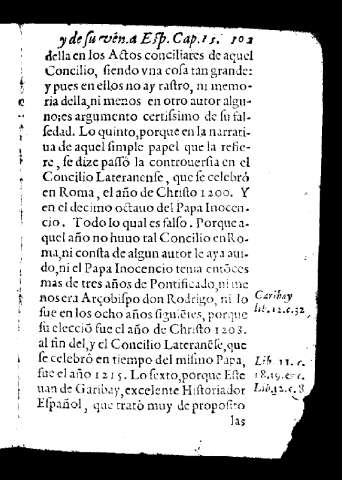 y de su vẽn. a Esp. Cap. 15. 102
della en los Actos conciliares de aquel
Concilio, siendo vna cosa tan grande:
y pues en ellos no ay rastro, ni memo-
ria della, ni menos en otro autor algu-
no: es argumento certissimo de su fal-
sedad. Lo quinto, porque en la narrati-
ua de aquel simple papel que la refie-
re, se dize passò la controuersia en el
Concilio Lateranense, que se celebrò
en Roma, el año de Christo 1200. Y
en el decimo octauo del Papa Inocen-
cio. Todo lo qual es falso. Porque a-
quel año no huuo tal Concilio en Ro-
ma, ni consta de algun autor le aya aui-
do, ni el Papa Inocencio tenia entõces
mas de tres años de Pontificado, ni me
nos era Arçobispo don Rodrigo, ni lo
fue en los ocho años siguiẽtes, porque
su elecciõ fue el año de Christo 1203.
al fin del, y el Concilio Lateranẽse, que
se celebrò en tiempo del mismo Papa,
fue el año 1215. Lo sexto, porque Este
uan de Garibay, excelente Historiador
Español, que tratò muy de proposito
las
Caribay
lib. 12. c. 32.
Lib. 11. c.
18. 19. & c.
Lib. 12. c. 8